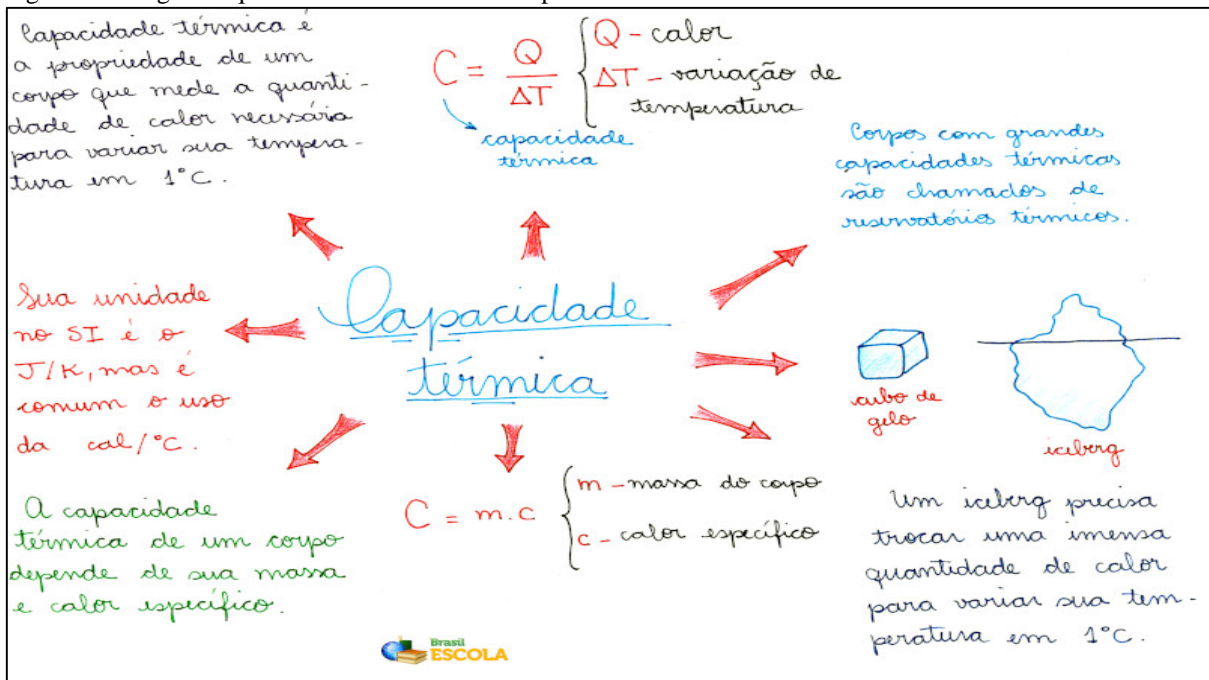 Capacidade térmica é
a propriedade de um
corpo que mede a quanti-
dade de calor necessária
para variar sua tempera-
tura em 1°C.
C = Q
ΔT
Q - calor
ΔT - variação de
temperatura
capacidade
térmica
Corpos com grandes
capacidades térmicas
são chamados de
reservatórios térmicos.
Sua unidade
no SI é o
J/K, mas é
comum o uso
da cal/°C.
Capacidade
térmica
cubo de
gelo
iceberg
A capacidade
térmica de um corpo
depende de sua massa
e calor específico.
C = m.c
m - massa do corpo
c - calor específico
Um iceberg precisa
trocar uma imensa
quantidade de calor
para variar sua tem-
peratura em 1°C.
Brasil
ESCOLA